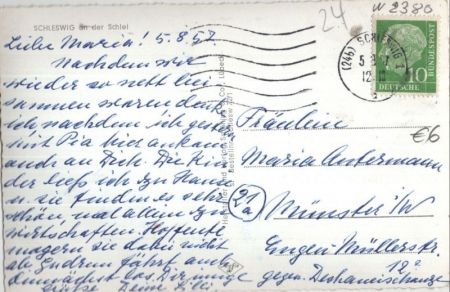 SCHLESWIG an der Schlei
24
N 2380
Liebe Maria! 5.8.57
Nachdem wir
wieder so nett bei-
sammen waren denk
ich, nachdem ich gestern
mit Pia hier ankam
auch an Dich. Die Kin-
der ließ ich zu Hause
u. sie finden es sehr
schön mal allein zu
wirtschaften. Hoffentl.
magern sie dabei nicht
ab. Gudrun fährt auch
demnächst
Grüße Deine
(24b) SCHLESWIG
5.8.
12
DEUTSCHE
BUNDESPOST
10
€6
Fräulein
Maria
21a
Münster i/W
Eugen-Müllerstr.
12a
gegen